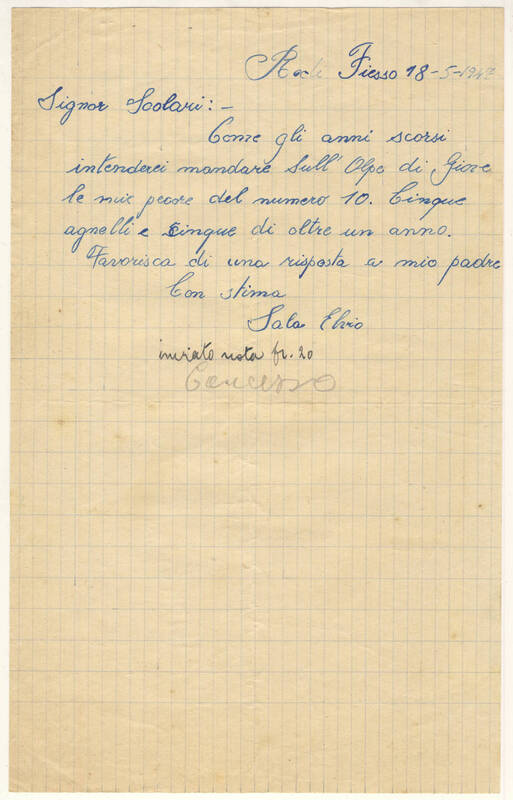 Rodi Fiesso 18-5-1947
Signor Scolari:-
Come gli anni scorsi
intenderei mandare Sull'Alpe di Giove
le mie pecore del numero 10. Cinque
agnelli e Cinque di oltre un anno.
Favorisca di una risposta a mio padre
Con stima
Sala Elvio
inviato nota fr. 20
Concesso